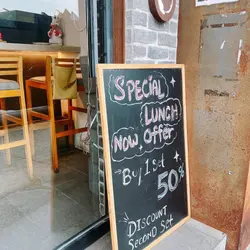 SPECIAL
LUNCH
NOW OFFER
Buy 1 set
50%
DISCOUNT
SECOND SET